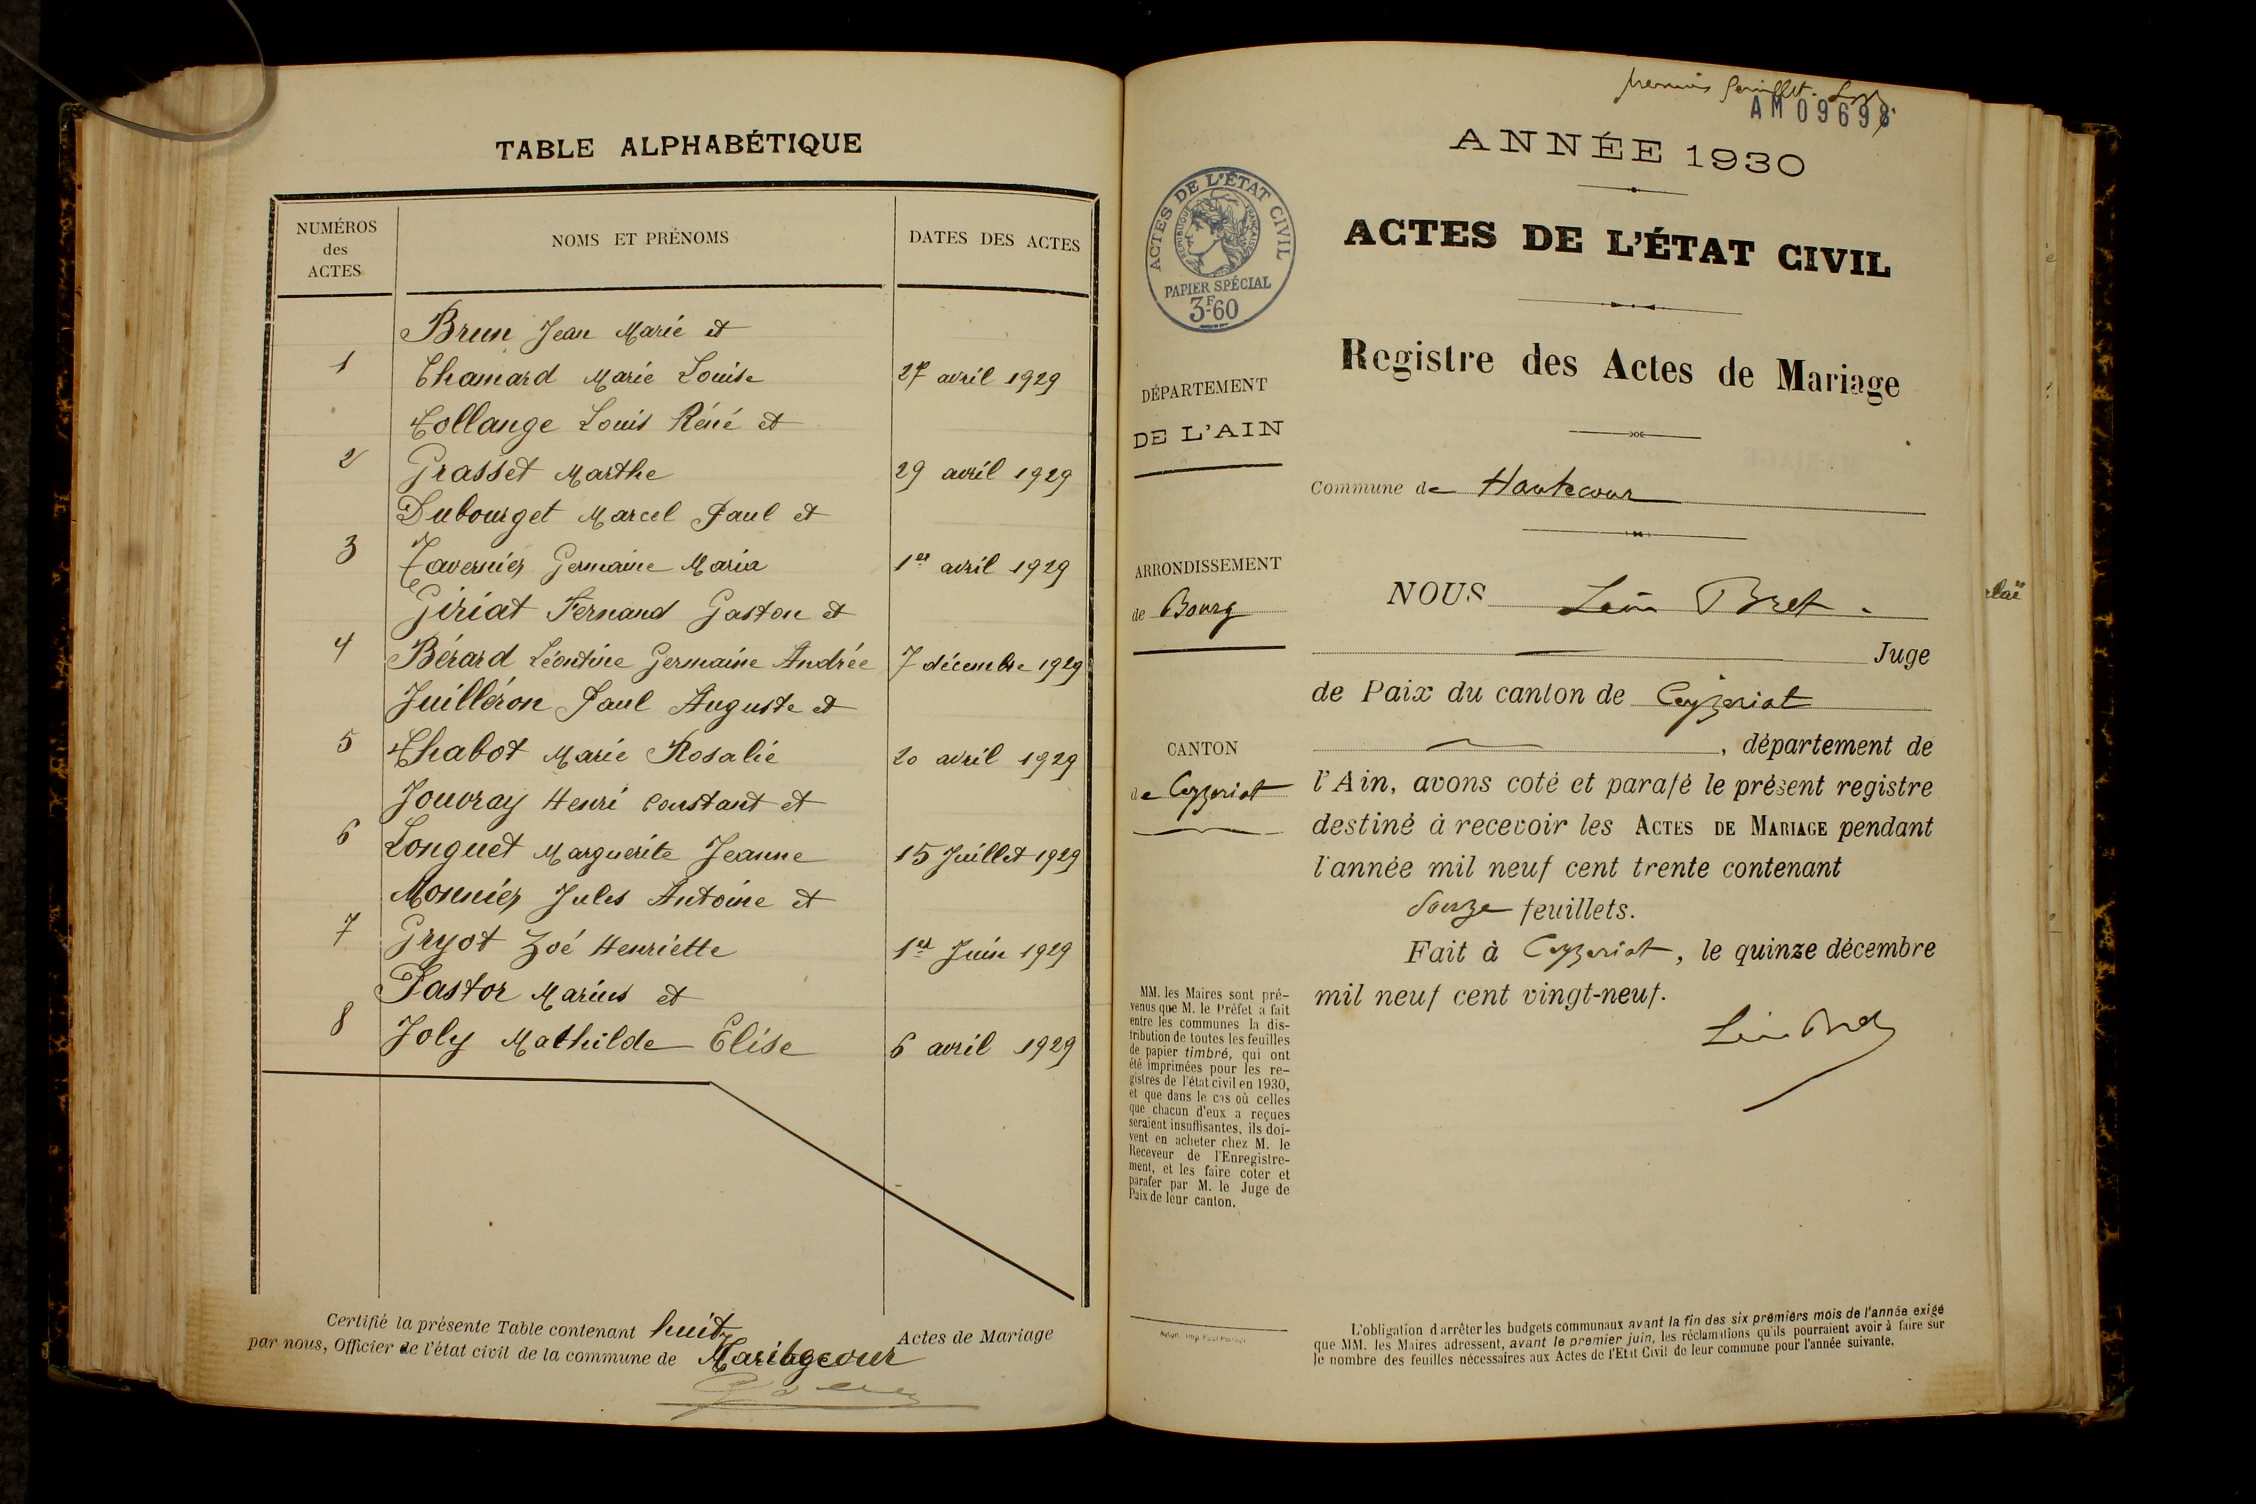 TABLE ALPHABÉTIQUE
NUMÉROS
des
ACTES
NOMS ET PRÉNOMS
DATES DES ACTES
Brun Jean Marie et
1 Chanard Marie Louise 27 avril 1929
Collange Louis Réné et
2 Grasset Marthe 29 avril 1929
Dubourget Marcel Paul et
3 Tavernier Germaine Maria 1er avril 1929
Giriat Fernand Gaston et
4 Bérard Léontine Germaine Andrée 7 décembre 1929
Juilléron Paul Auguste et
5 Chabot Marie Rosalie 20 avril 1929
Jouvray Henri Constant et
6 Longuet Marguerite Jeanne 15 Juillet 1929
Monnier Jules Antoine et
7 Gryot Zoé Henriette 1er Juin 1929
Pastor Marius et
8 Joly Mathilde Elise 6 avril 1929
Certifié la présente Table contenant huit Actes de Mariage
par nous, Officier de l'état civil de la commune de
premier feuillet.
AM 09698
ANNÉE 1930
ACTES DE L'ÉTAT CIVIL
RÉPUBLIQUE FRANÇAISE
PAPIER SPÉCIAL
3F60
ACTES DE L'ÉTAT CIVIL
Registre des Actes de Mariage
DÉPARTEMENT
DE L'AIN
Commune de Hautecour
ARRONDISSEMENT
de Bourg
CANTON
de Ceyzeriat
NOUS Léon Bret.
Juge
de Paix du canton de Ceyzeriat
, département de
l'Ain, avons coté et parafé le présent registre
destiné à recevoir les ACTES DE MARIAGE pendant
l'année mil neuf cent trente contenant
douze feuillets.
Fait à Ceyzeriat, le quinze décembre
mil neuf cent vingt-neuf.
Léon Bret
MM. les Maires sont pré-
venus que M. le Préfet a fait
entre les communes la dis-
tribution de toutes les feuilles
de papier timbré, qui ont
été imprimées pour les re-
gistres de l'état civil en 1930,
et que dans le cas où celles
que chacun d'eux a reçues
seraient insuffisantes, ils doi-
vent en acheter chez M. le
Receveur de l'Enregistre-
ment, et les faire coter et
parafer par M. le Juge de
Paix de leur canton.
L'obligation d'arrêter les budgets communaux avant la fin des six premiers mois de l'année exige
que MM. les Maires adressent, avant le premier juin, les réclamations qu'ils pourraient avoir à faire sur
le nombre des feuilles nécessaires aux Actes de l'Etat Civil de leur commune pour l'année suivante.